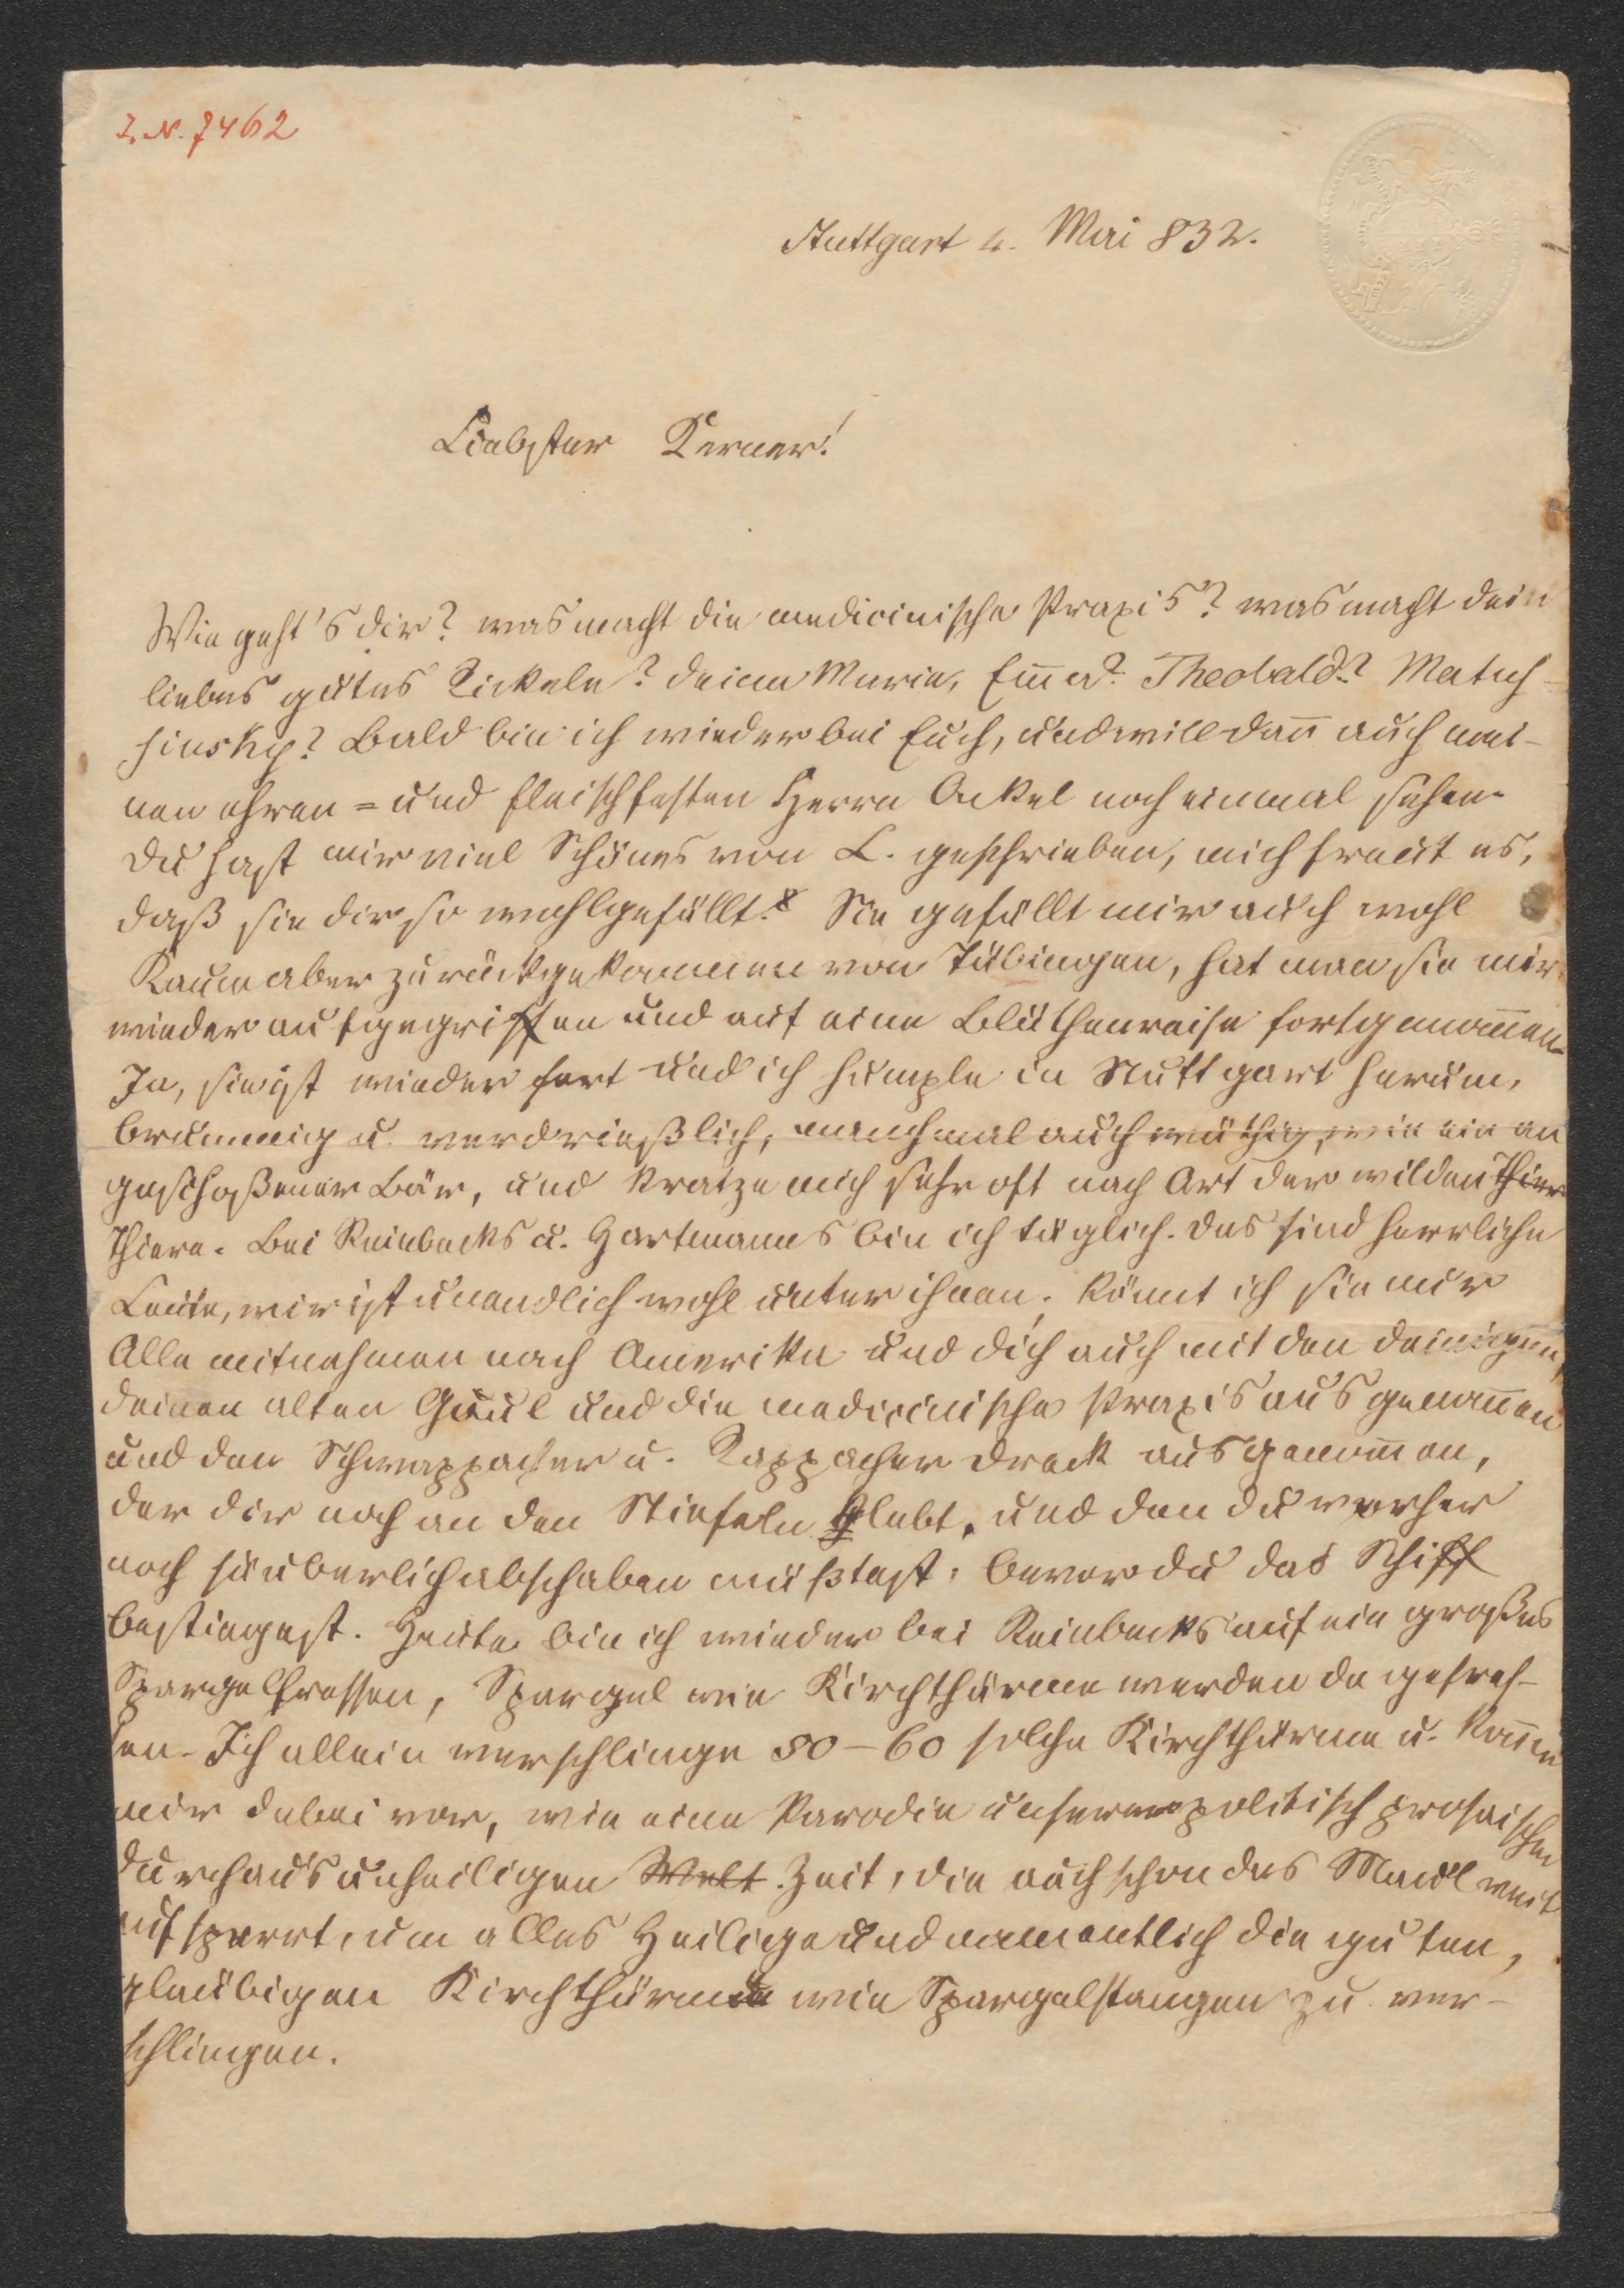 I. N. 7462
Stuttgart 4. Mai 832.
Liebster Kerner!
Wie geht's dir? was macht die medicinische Praxis? was macht dein
liebes gutes Rickele? deine Marie, Em̅a? Theobald? Matuſch-
sinsky? Bald bin ich wieder bei Euch, und will dan̅ auch mei-
nen ehren= und fleischfesten Herrn Onkel noch einmal sehen.
Du hast mir viel Schönes von L. geschrieben, mich freut es,
daß sie dir so wohlgefällt. Sie gefällt mir auch wohl
Kaum aber zurückgekommen von Tübingen, hat man sie mir
wieder aufgegriffen und auf eine Blüthenreise fortgenom̅en.
Ja, sie ist wieder fort und ich humple in Stuttgart herum,
brummig u. verdrießlich, manchmal auch wüthig, wie ein an
geschoßener Bär, und kratze mich sehr oft nach Art der wilden Thier
Thiere. Bei Reinbecks u. Hartmanns bin ich täglich. Das sind herrliche
Leute, mir ist unendlich wohl unter ihnen. Könnt ich sie nur
Alle mitnehmen nach Amerika und dich auch mit den deinigen,
deinen alten Gaul und die medicinische Praxis ausgenom̅en
und den Schwappacher u. Rappacher Dreck ausgenom̅en,
der dir noch an den Stiefeln klebt, und den du vorher
noch säuberlich abschaben müßtest, bevor du das Schiff
bestiegest. Heute bin ich wieder bei Reinbecks auf ein großes
Spargelfressen, Spargel wie Kirchthürme werden da gefres-
sen. Ich allein verschlinge 50–60 solche Kirchthürme u. kom̅e
mir dabei vor, wie eine Parodie unserer politisch prosaischen
durchaus unheiligen Welt Zeit, die auch schon das Maul weit
aufsperrt, um alles Heilige und namentlich die guten,
glaubigen Kirchthürme wie Spargelstangen zu ver-
schlingen.